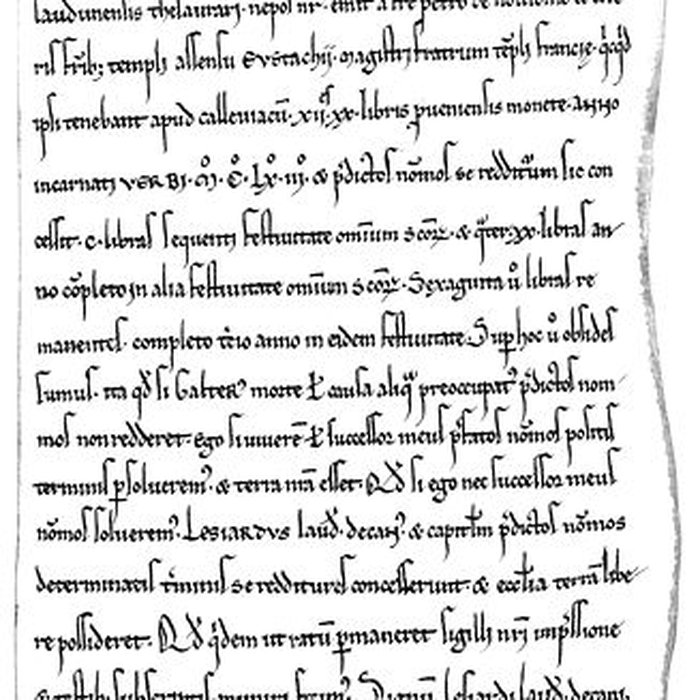 laudunensis thesaurarį · nepos nr̄ · emit a fr̄e petro de
ris fr̄ib; templi assensu Eustachij · magistrį fratrum tēpli francię · q̄cq̄d
ipsi tenebant apud calleuiacū · xijes · xx · libris pueniensis monete · anno
incarnatį verbi · m̊ · c̊ · lx̊ · iijº · & p̄dictos nōmos se redditūrum sic con
cessit · c · libras sequentį festiuitate omīum scōꝝ · & q̄ter · xx · libras an
no cōpleto in alia festiuitate omīum scōꝝ · Sexaginta ů libras re
manentes · completo t̄cio anno in eidem festiuitate Sup hoc ů obsides
sumus · ita qd̄ si Galterꝰ morte ł causa aliq̄ preoccupatꝰ p̄dictos nom
mos non redderet · ego si uiuerē · ł successor meus p̄fatos nōmos positis
terminis ꝑsolueremꝰ · & terra mā esset · Qd̄ si ego nec successor meus
nōmos solueremꝰ · Lesiardus laud̄ · decanꝰ · & capitłm p̄dictos nōmos
determinatis t̄minis se reddituros concesserunt · & eccłia terrā libe
re possideret · Qd̄ q̄dem ut ratū ꝑmaneret sigilli nrį impssione
& testibus subscriptis muniri fecimꝰ · Signū Lesiardi laud̄ decani